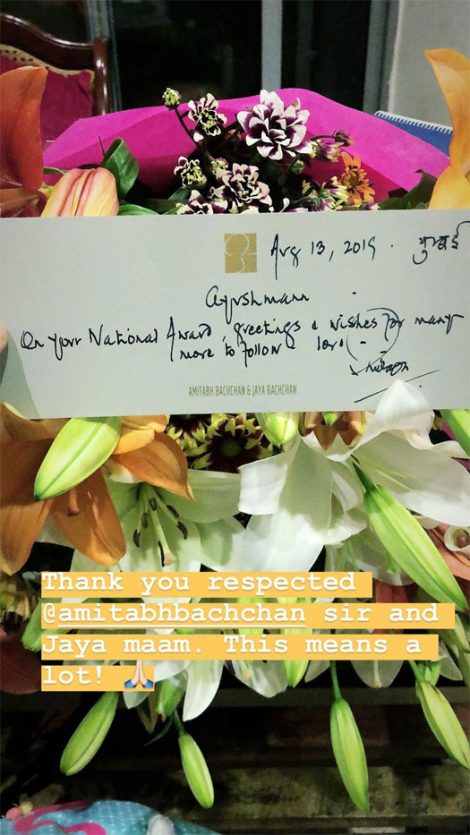 Aug 13, 2019. मुम्बई
Ayushmann
On your National Award, greetings & wishes for many
more to follow love
AMITABH BACHCHAN & JAYA BACHCHAN
Thank you respected
@amitabhbachchan sir and
Jaya maam. This means a
lot! 🙏🏻